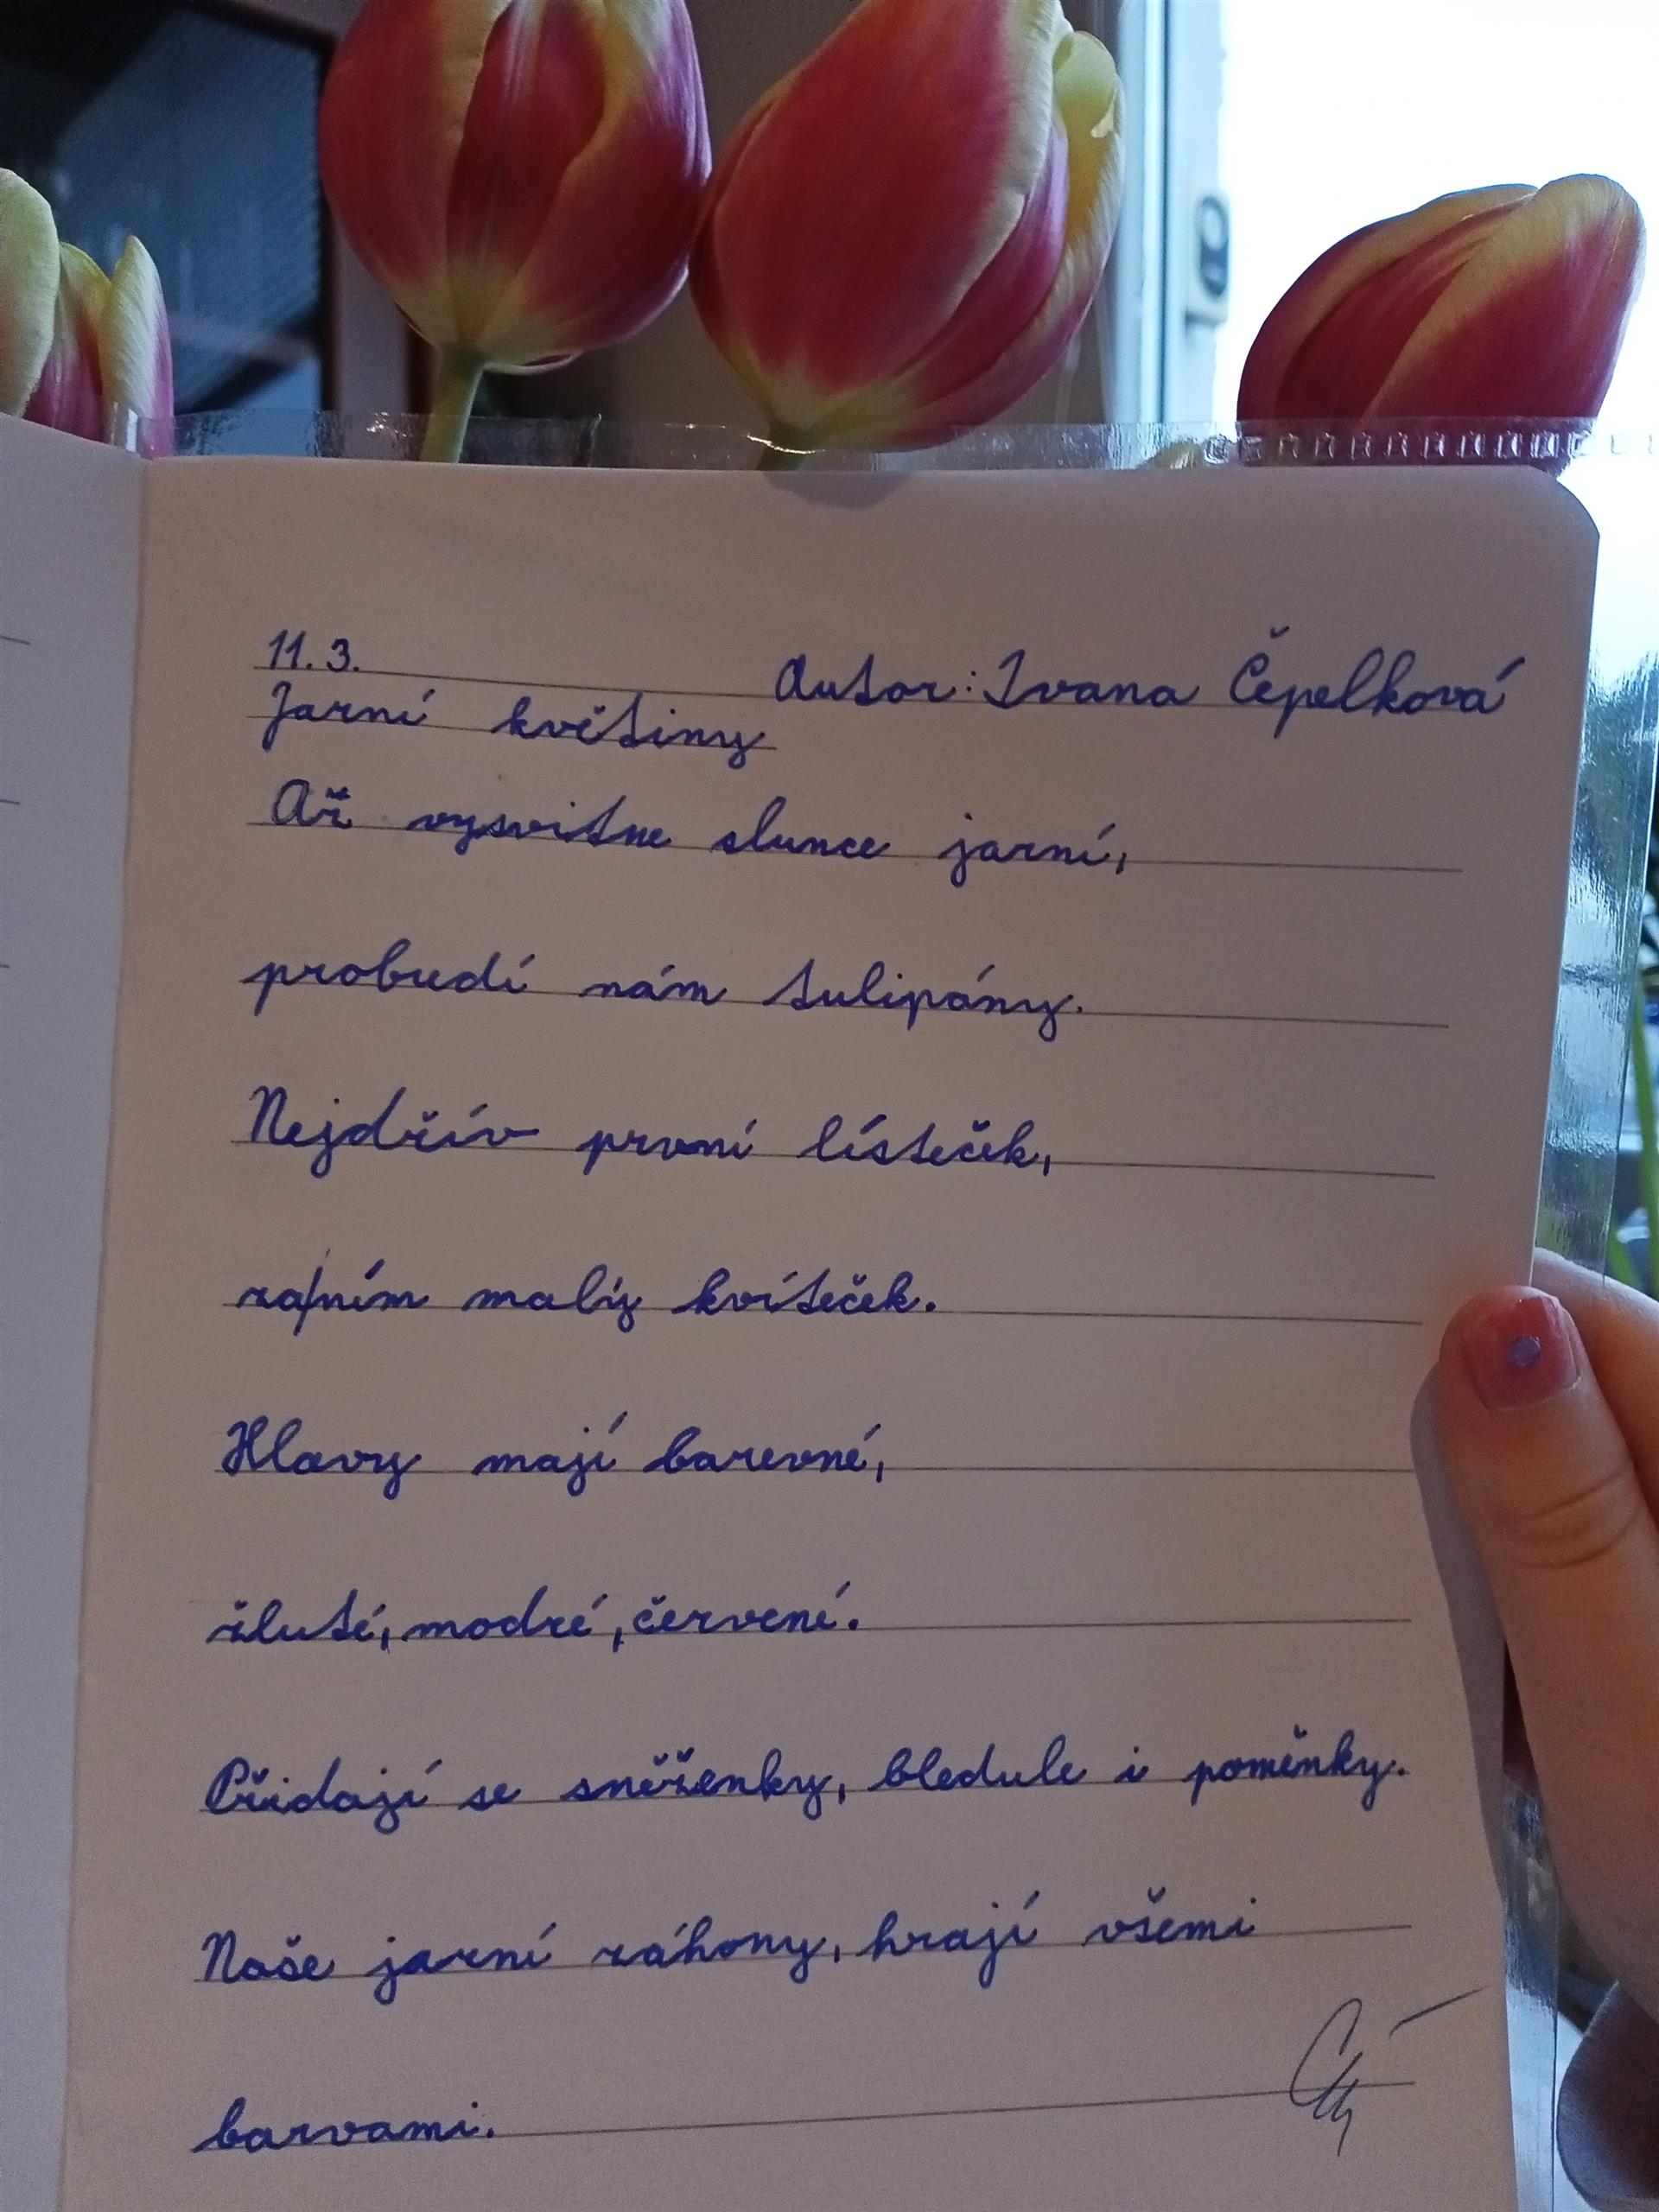 11. 3.
Autor: Ivana Čepelková
Jarní květiny
Až vysvitne slunce jarní,
probudí nám tulipány.
Nejdřív první lísteček,
za/ním malý kvíteček.
Hlavy mají barevné,
žluté, modré, červené.
Přidají se sněženky, bledule i pomněnky.
Naše jarní záhony, hrají všemi
barvami.